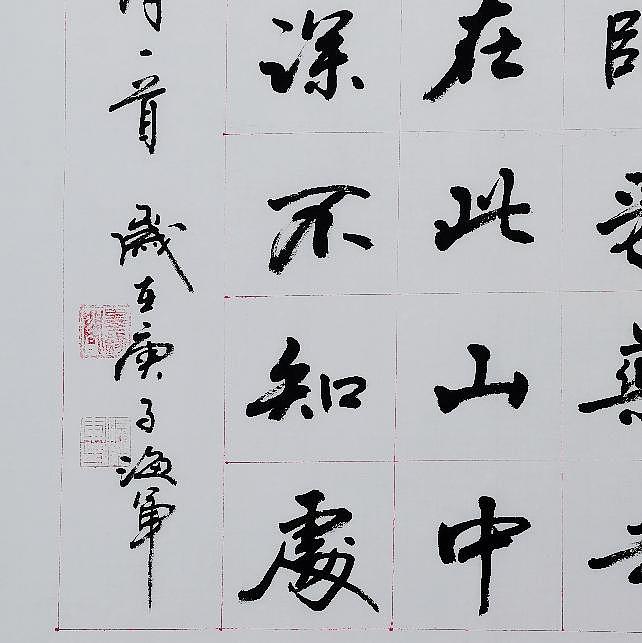 在此山中
深不知處
一首 歲在庚子海軍